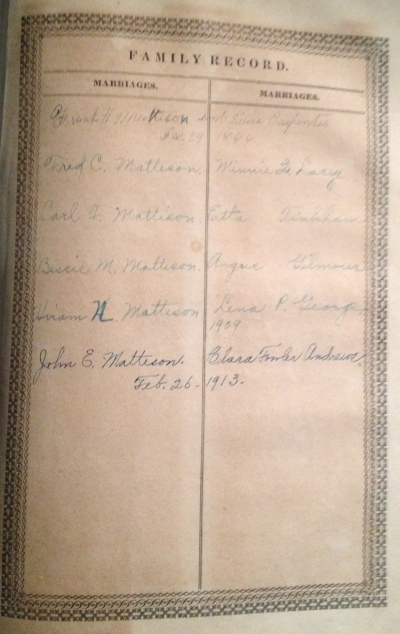 FAMILY RECORD.
MARRIAGES. MARRIAGES.
Mattison and Carpenter
Fred C. Mattison. Minnie Lacey
Carl F. Mattison. Etta Tinkham
Bessie M. Mattison. Angus Gilmour
Hiram N. Mattison Lena P. George,
1909
John E. Matteson. Clara Fowler Andrews.
Feb. 26 - 1913.